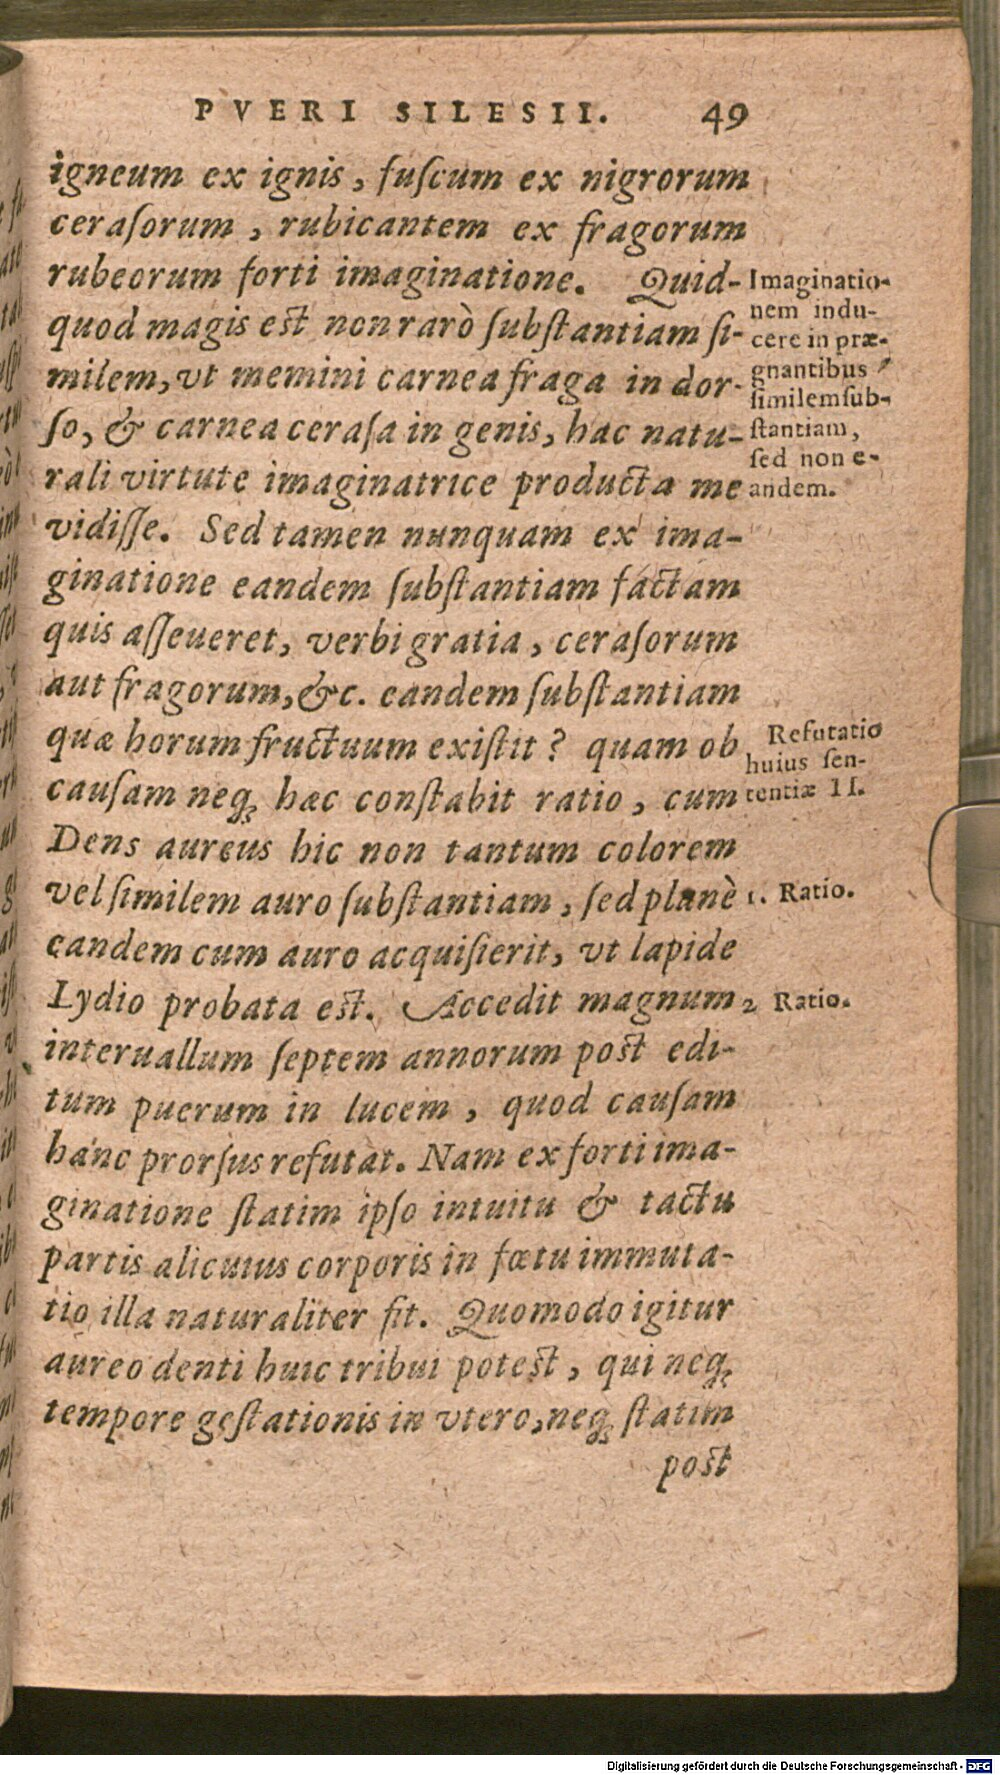 PVERI SILESII. 49
igneum ex ignis, fuſcum ex nigrorum
ceraſorum, rubicantem ex fragorum
rubeorum forti imaginatione. Quid-
quod magis est non rarò ſubſtantiam ſi-
milem, vt memini carnea fraga in dor-
ſo, & carnea ceraſa in genis, hac natu-
rali virtute imaginatrice producta me
vidiſſe. Sed tamen nunquam ex ima-
ginatione eandem ſubſtantiam factam
quis aſſeueret, verbi gratia, ceraſorum
aut fragorum, &c. eandem ſubſtantiam
quæ horum fructuum exiſtit? quam ob
cauſam neq; hæc conſtabit ratio, cum
Dens aureus hic non tantum colorem
vel ſimilem auro ſubſtantiam, ſed planè
eandem cum auro acquiſierit, vt lapide
Lydio probata est. Accedit magnum
interuallum ſeptem annorum post edi-
tum puerum in lucem, quod cauſam
hanc prorſus refutat. Nam ex forti ima-
ginatione ſtatim ipſo intuitu & tactu
partis alicuius corporis in fœtu immuta-
tio illa naturaliter fit. Quomodo igitur
aureo denti huic tribui potest, qui neq;
tempore geſtationis in vtero, neq; ſtatim
post
Imaginatio-
nem indu-
cere in præ-
gnantibus
ſimilem ſub-
ſtantiam,
ſed non e-
andem.
Refutatio
huius ſen-
tentiæ II.
1. Ratio.
2 Ratio.
Digitalisierung gefördert durch die Deutsche Forschungsgemeinschaft - DFG